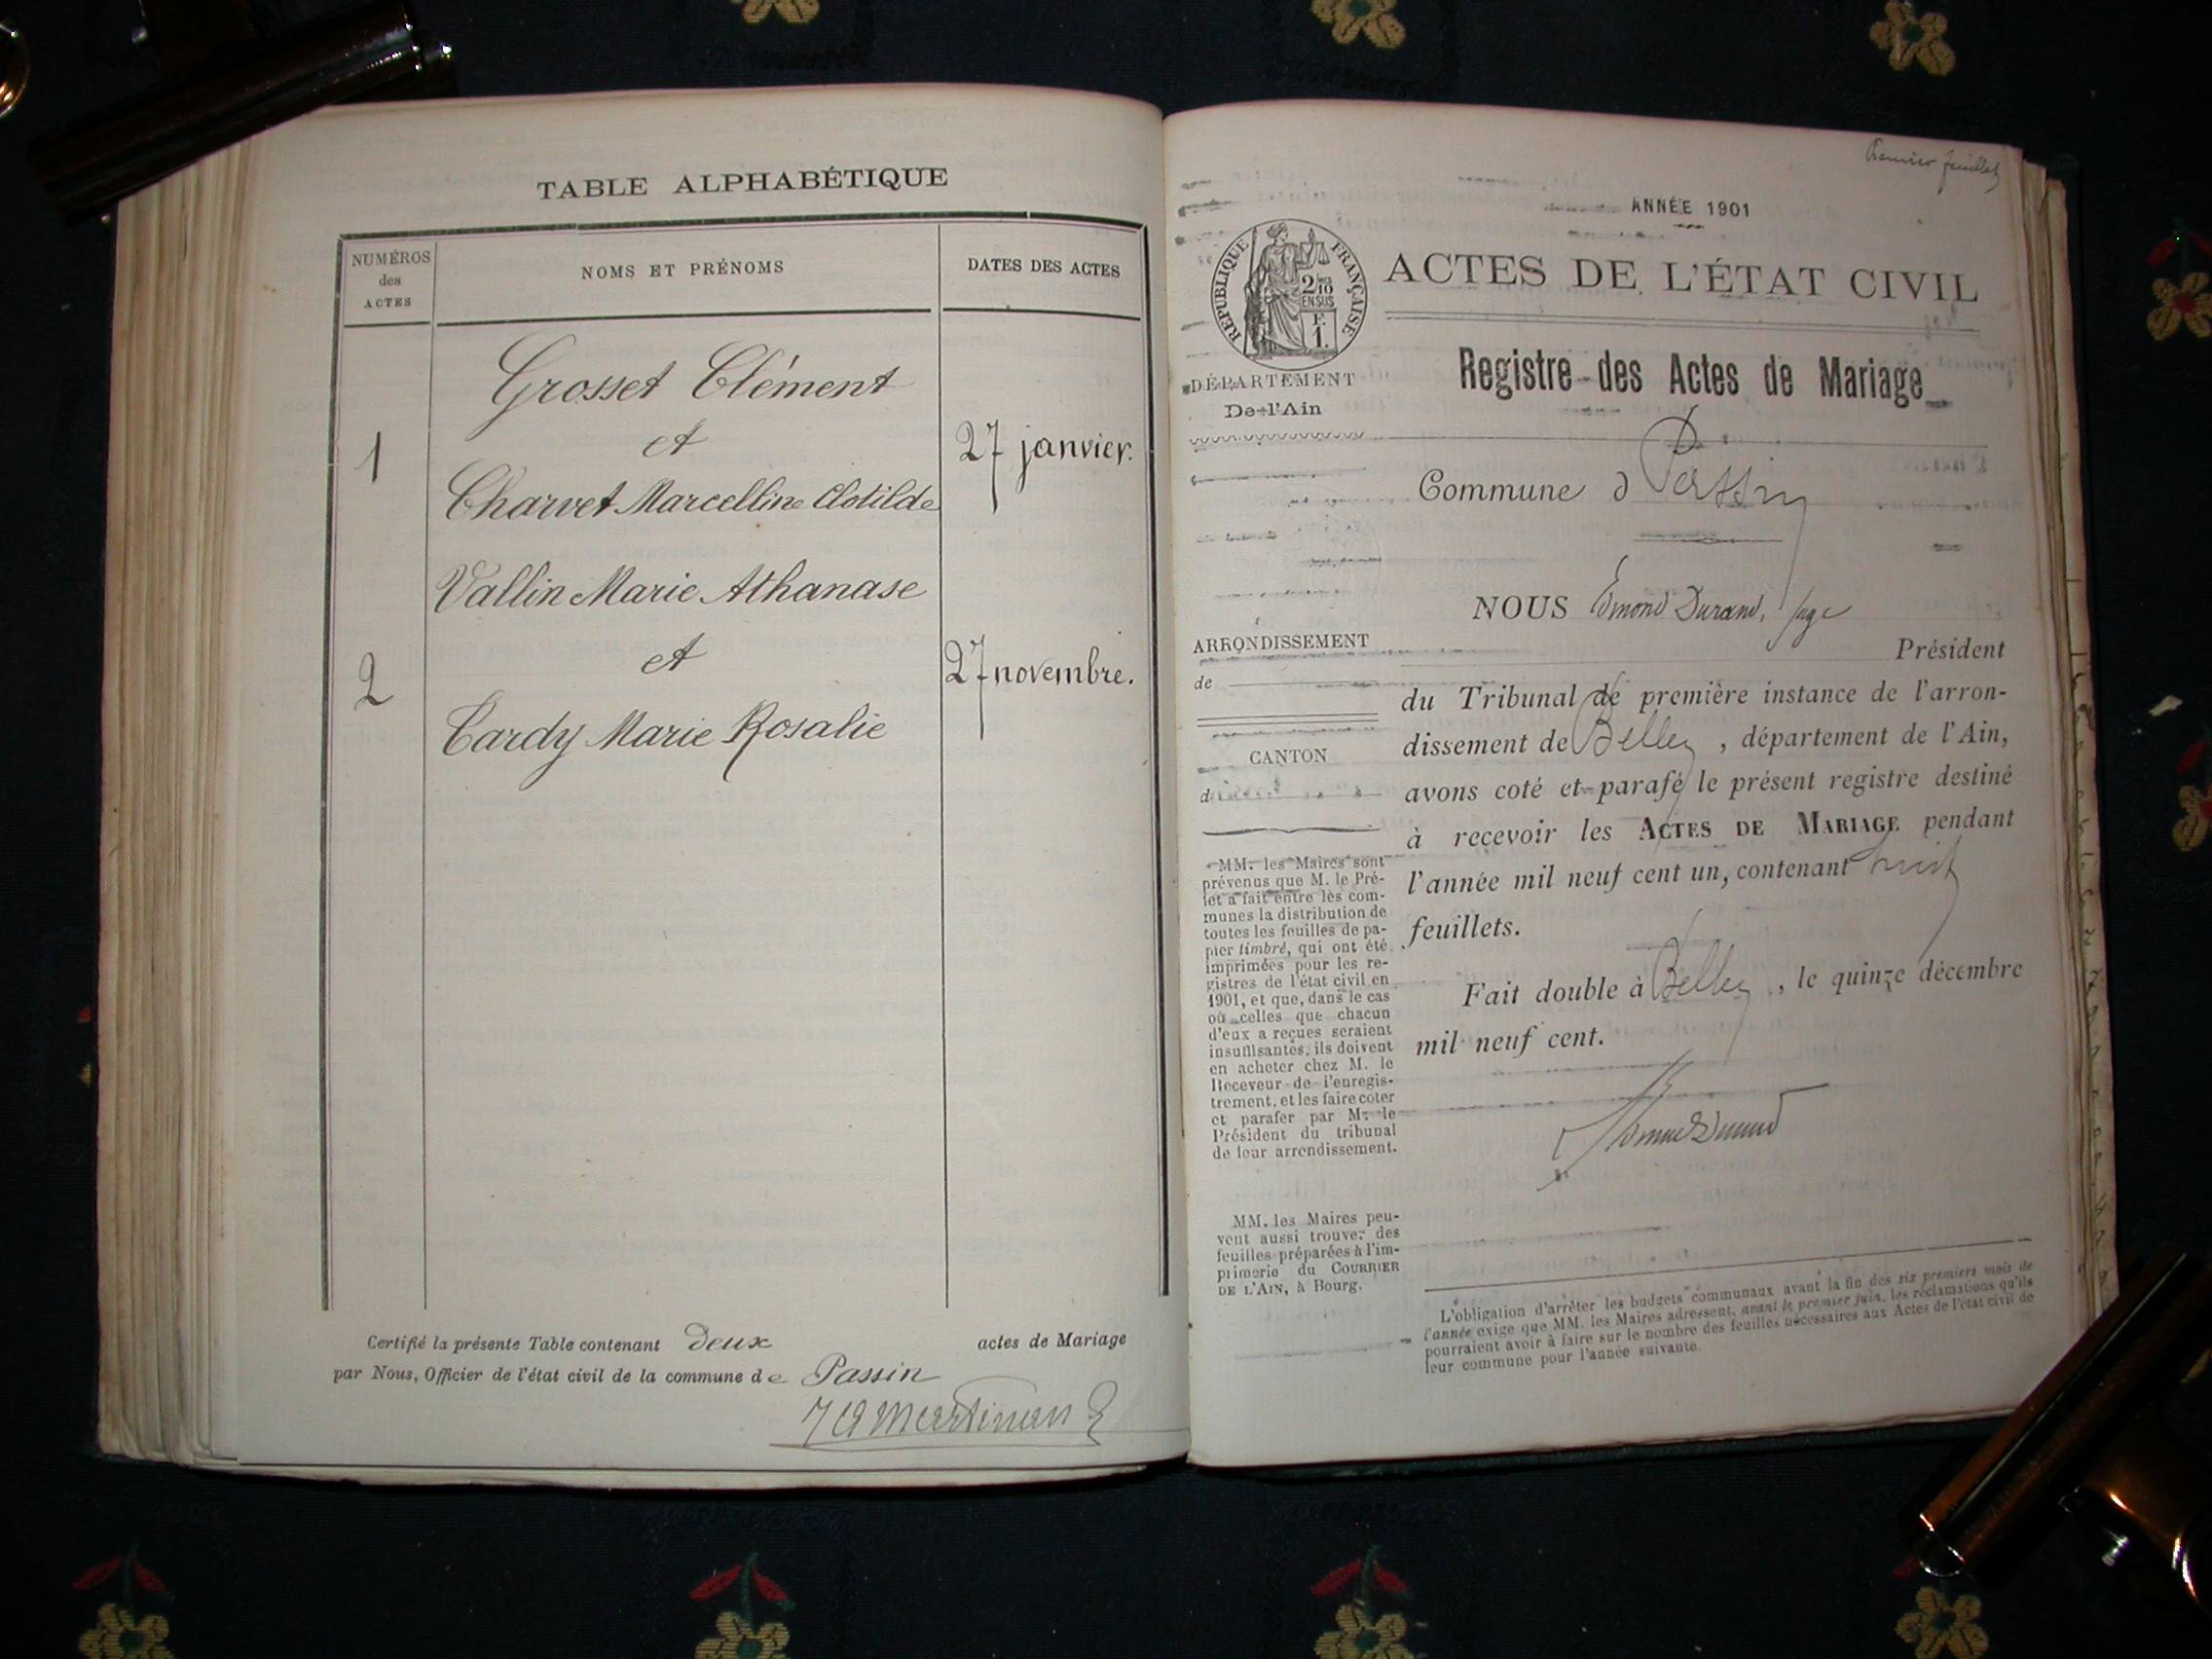 TABLE ALPHABÉTIQUE
NUMÉROS
des
ACTES
NOMS ET PRÉNOMS
DATES DES ACTES
Grosset Clément
1
et
27 janvier.
Charvet Marcelline Clotilde
Vallin Marie Athanase
2
et
27 novembre.
Cardy Marie Rosalie
Certifié la présente Table contenant deux actes de Mariage
par Nous, Officier de l'état civil de la commune de Passin
Premier feuillet
ANNÉE 1901
RÉPUBLIQUE FRANÇAISE
2/10
EN SUS
F.
1.
ACTES DE L'ÉTAT CIVIL
DÉPARTEMENT
De l'Ain
Registre des Actes de Mariage
Commune d Passin
NOUS Edmond Durand, juge
Président
du Tribunal de première instance de l'arron-
dissement de Belley, département de l'Ain,
avons coté et parafé le présent registre destiné
à recevoir les ACTES DE MARIAGE pendant
l'année mil neuf cent un, contenant huit
feuillets.
Fait double à Belley, le quinze décembre
mil neuf cent.
ARRONDISSEMENT
de
CANTON
d
MM. les Maires sont
prévenus que M. le Pré-
fet a fait entre les com-
munes la distribution de
toutes les feuilles de pa-
pier timbré, qui ont été
imprimées pour les re-
gistres de l'état civil en
1901, et que, dans le cas
où celles que chacun
d'eux a reçues seraient
insuffisantes, ils doivent
en acheter chez M. le
Receveur de l'enregis-
trement, et les faire coter
et parafer par M. le
Président du tribunal
de leur arrondissement.
MM. les Maires peu-
vent aussi trouver des
feuilles préparées à l'im-
primerie du COURRIER
DE L'AIN, à Bourg.
L'obligation d'arrêter les budgets communaux avant la fin des six premiers mois de
l'année exige que MM. les Maires adressent, avant le premier juin, les réclamations qu'ils
pourraient avoir à faire sur le nombre des feuilles nécessaires aux Actes de l'état civil de
leur commune pour l'année suivante.